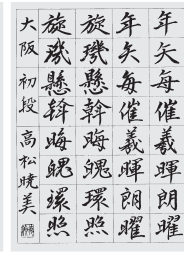 年矢每催羲暉朗曜
年矢每催羲暉朗曜
旋璣懸斡晦魄環照
旋璣懸斡晦魄環照
大阪 初段 高松暁美